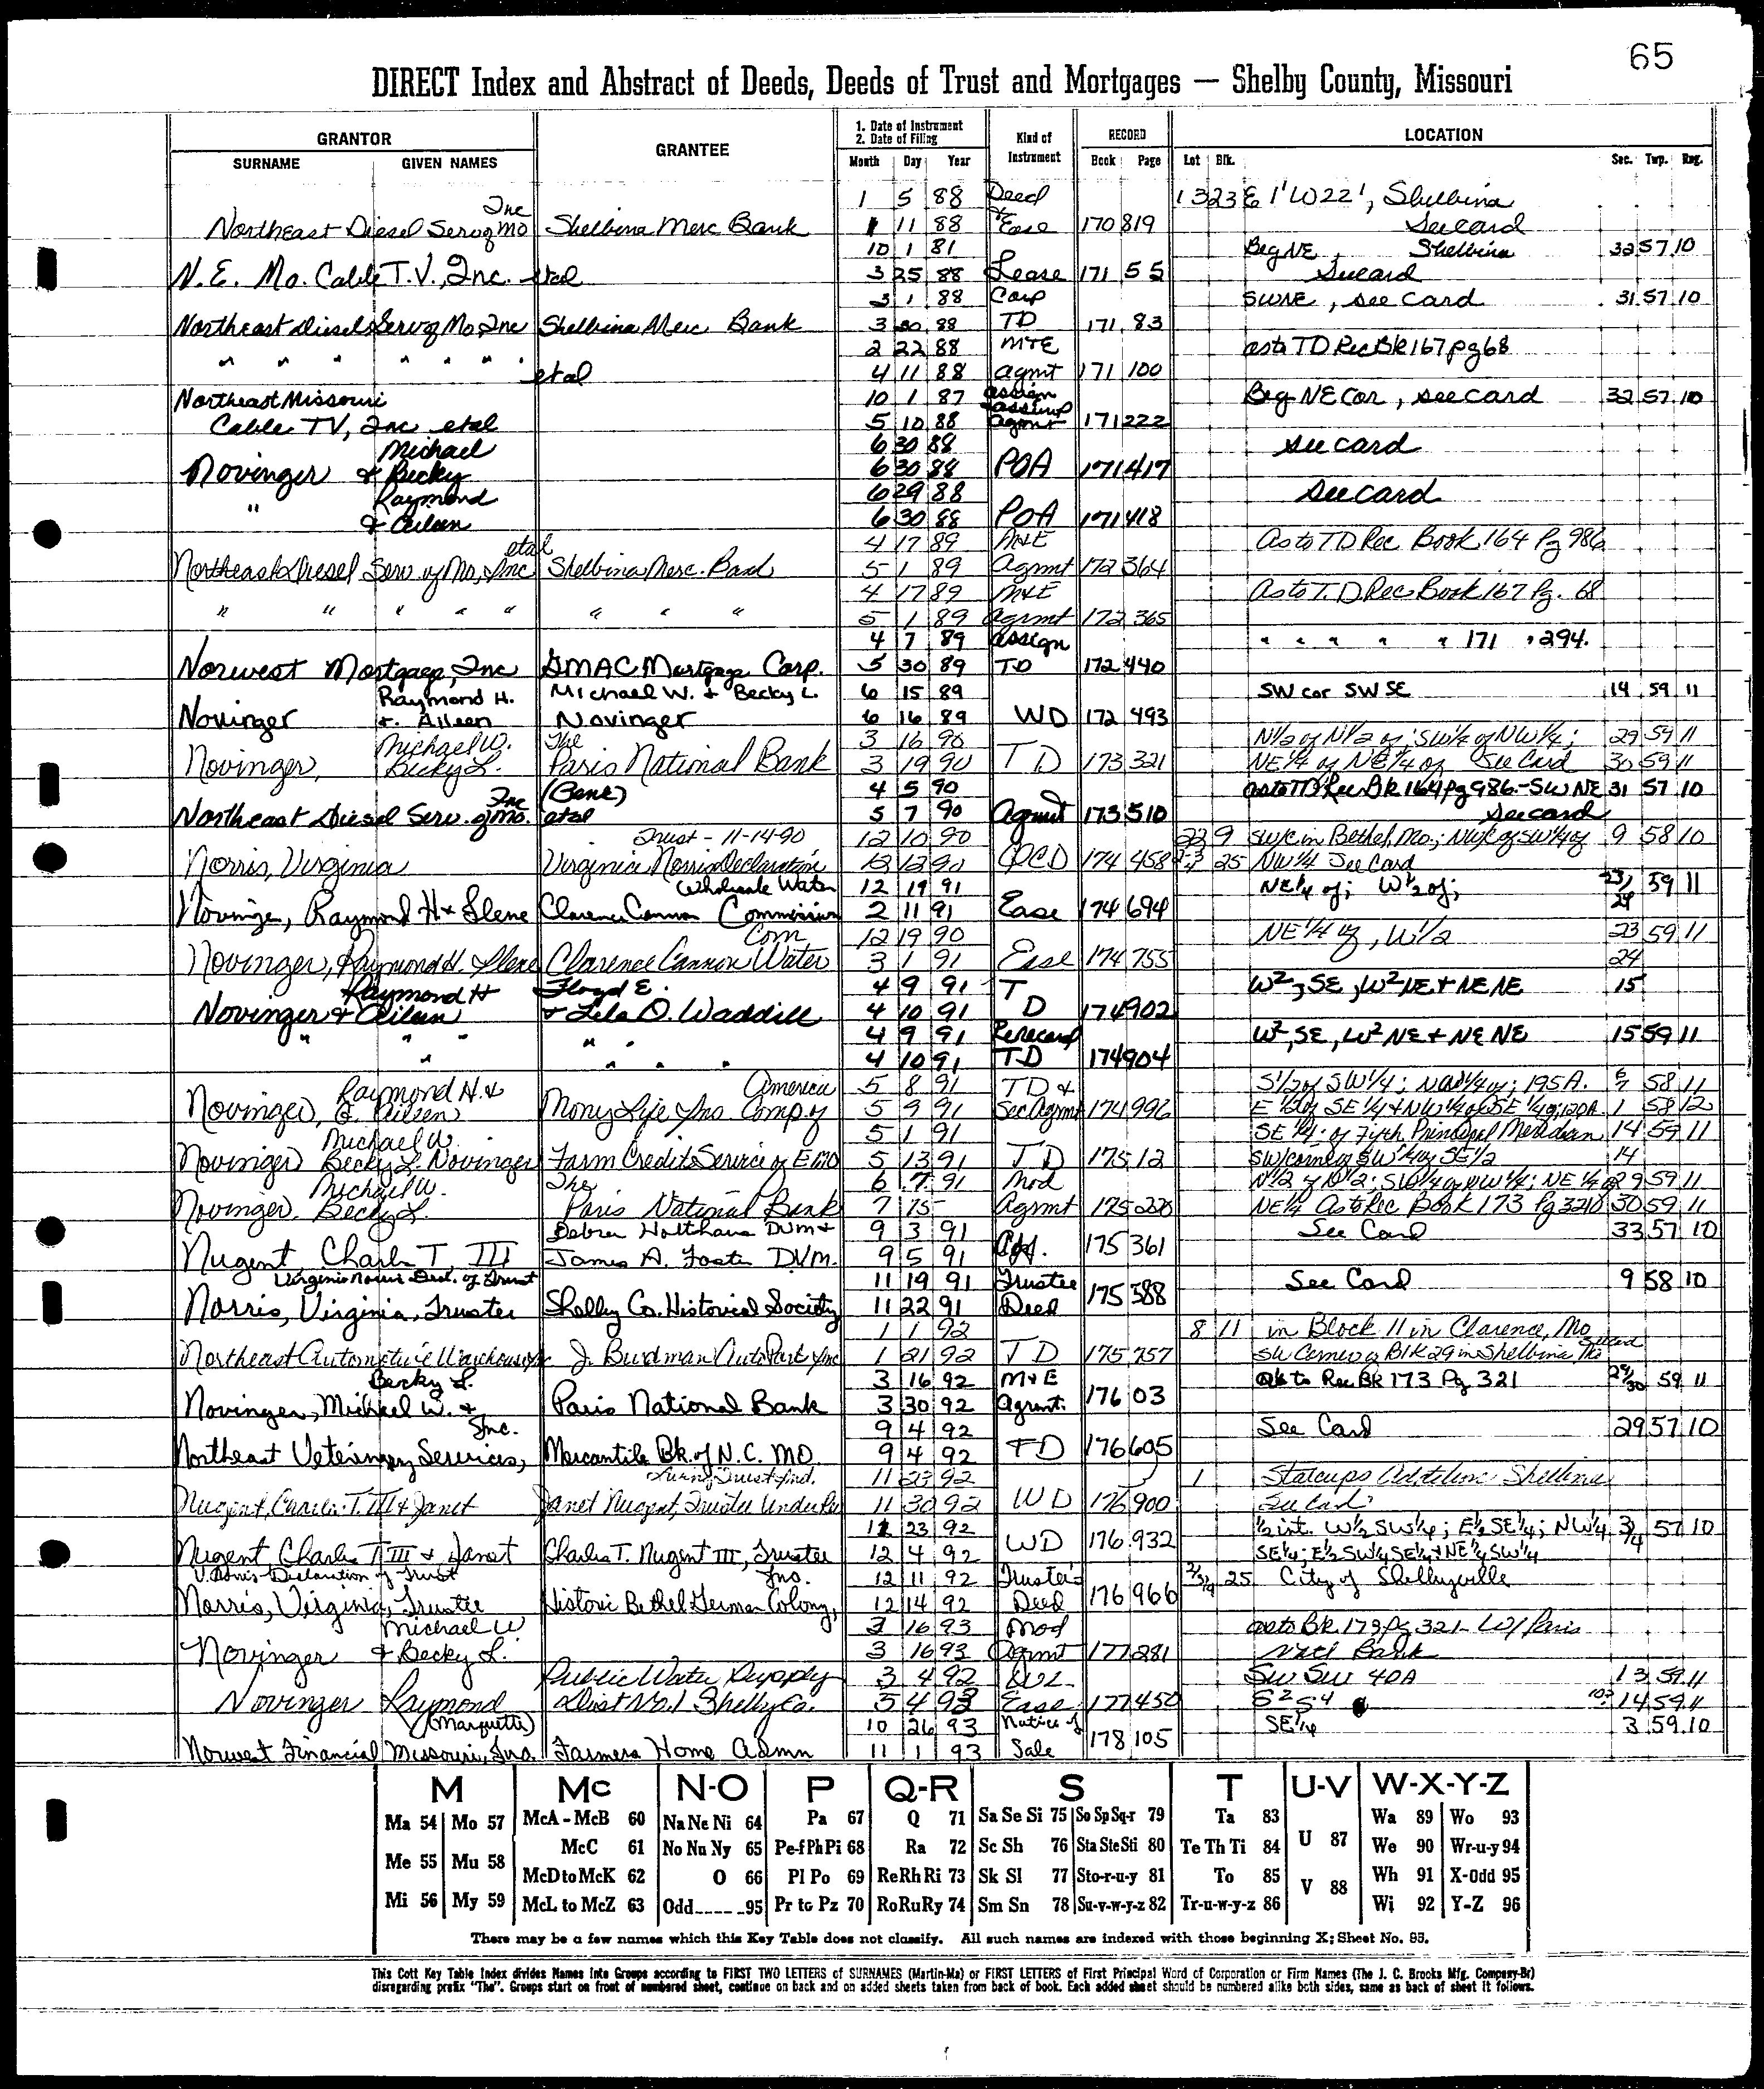 65
DIRECT Index and Abstract of Deeds, Deeds of Trust and Mortgages — Shelby County, Missouri
GRANTOR GRANTEE 1. Date of Instrument 2. Date of Filing Kind of Instrument RECORD LOCATION
SURNAME GIVEN NAMES Month Day Year Book Page Lot Blk. Sec. Twp. Rng.
Inc 1 5 88 Deed 1 3 23 E 1' W22', Shelbina
Northeast Diesel Serv of Mo Shelbina Merc Bank 1 11 88 Ease 170 819 See card
10 1 81 Beg NE, Shelbina 32 57 10
N.E. Mo. Cable T.V., Inc. etal 3 25 88 Lease 171 55 See card
3 1 88 Corp SWNE, see card 31 57 10
Northeast Diesel Serv of Mo, Inc Shelbina Merc Bank 3 30 88 TD 171 83
" " " " " " " 2 22 88 MTE as to TD Rec Bk 167 pg 68
etal 4 11 88 agmt 171 100
Northeast Missouri 10 1 87 assign Beg NE Cor, see card 32 57 10
Cable TV, Inc etal 5 10 88 agmt 171 222
Michael 6 30 88 see card
Novinger & Becky 6 30 88 POA 171 417
Raymond 6 29 88 see card
" & Aileen 6 30 88 POA 171 418
etal 4 17 89 M&E As to TD Rec Book 164 Pg 986
Northeast Diesel Serv of Mo, Inc Shelbina Merc. Bank 5 1 89 Agmt 172 364
4 17 89 M&E As to T.D Rec Book 167 Pg. 68
" " " " " " " " 5 1 89 Agrmt 172 365
4 7 89 assign " " " " " 171 " 294.
Norwest Mortgage, Inc GMAC Mortgage Corp. 5 30 89 TD 172 440
Raymond H. Michael W. & Becky L. 6 15 89 SW cor SW SE 14 59 11
Novinger & Aileen Novinger 6 16 89 WD 172 493
Michael W. The 3 16 90 N1/2 of N1/2 of; SW1/4 of NW1/4; 29 59 11
Novinger, Becky L. Paris National Bank 3 19 90 TD 173 321 NE 1/4 of NE 1/4 of See Card 30 59 11
Inc (Bene) 4 5 90 as to TD Rec Bk 164 pg 986 - SW NE 31 57 10
Northeast Diesel Serv. of Mo. etal 5 7 90 Agmt 173 510 see card
Trust - 11-14-90 12 10 90 9 SW/c in Bethel, Mo; NW/c of SW1/4 of 9 58 10
Norris, Virginia Virginia Norris Declaration 12 12 90 QCD 174 458 25 NW 1/4 See Card
Wholesale Water 12 19 91 NE 1/4 of; W 1/2 of; 23/24 59 11
Novinger, Raymond H & Ilene Clarence Cannon Commission 2 11 91 Ease 174 694
Com 12 19 90 NE 1/4 of, W 1/2 23 59 11
Novinger, Raymond H. Ilene Clarence Cannon Water 3 1 91 Ease 174 755 24
Raymond H Floyd E. 4 9 91 T W2, SE, W2 NE + NE NE 15
Novinger & Aileen & Lela O. Waddill 4 10 91 D 174 902
" " " " " 4 9 91 Rerecord W2, SE, W2 NE + NE NE 15 59 11
" " " " 4 10 91 TD 174 904
Raymond H. & America 5 8 91 TD & S1/2 of SW 1/4; NW1/4 of; 195 A. 6/7 58 11
Novinger, G. Aileen Mony Life Ins Comp. of 5 9 91 Sec Agrmt 174 996 E 1/2 of SE 1/4 & NW 1/4 of SE 1/4 of; 120A 1 58 12
Michael W. 5 1 91 SE 1/4 of Fifth Principal Meridian 14 59 11
Novinger, Becky L. Novinger Farm Credit Service of E MO 5 13 91 TD 175 12 SW/corner of SW 1/4 of SE 1/2 14
Michael W. The 6 7 91 Mod N1/2 of N1/2; SW1/4 of NW1/4; NE 1/4 of 29 59 11
Novinger, Becky L. Paris National Bank 7 15 Agrmt 175 220 NE 1/4 As to Rec Book 173 Pg 321 30 59 11
Debra Holthaus DVM & 9 3 91 See Card 33 57 10
Nugent, Charles T, III James A. Foster DVM. 9 5 91 Aff. 175 361
Virginia Norris Decl. of Trust 11 19 91 Trustee See Card 9 58 10
Norris, Virginia, Trustee Shelby Co. Historical Society 11 22 91 Deed 175 388
1 1 92 8 11 in Block 11 in Clarence, Mo
Northeast Automotive Warehouse J. Burdman Auto Parts Inc 1 21 92 TD 175 757 SW Corner of Blk 29 in Shelbina
Becky L. 3 16 92 M&E as to Rec Bk 173 Pg 321 29/30 59 11
Novinger, Michael W. & Paris National Bank 3 30 92 Agrmt. 176 03
Inc. 9 4 92 See Card 29 57 10
Northeast Veterinary Services, Mercantile Bk. of N.C. MO 9 4 92 TD 176 605
Living Trust Ind. 11 23 92 1 Stalcups Addition Shelbina
Nugent, Charles T. III & Janet Janet Nugent, Trustee Under 11 30 92 WD 176 900 See Card
11 23 92 1/2 int. W1/2 SW1/4; E1/2 SE1/4; NW1/4 3/4 57 10
Nugent, Charles T III & Janet Charles T. Nugent III, Trustee 12 4 92 WD 176 932 SE1/4; E1/2 SW1/4 SE1/4 & NE 1/4 SW 1/4
V. Norris Declaration of Trust Inc. 12 11 92 Trustee's 25 City of Shelbyville
Norris, Virginia, Trustee Historic Bethel German Colony, 12 14 92 Deed 176 966
Michael W 3 16 93 Mod as to Bk 173 Pg 321 W/ Paris
Novinger & Becky L. 3 16 93 Agrmt 177 281 Natl Bank
Public Water Supply 3 4 92 SW SW 40A 13 59 11
Novinger Raymond Dist No. 1 Shelby Co. 3 4 93 Ease 177 450 14 59 11
(Marquette) 10 26 93 Notice of SE 1/4 3 59 10
Norwest Financial Missouri, Inc. Farmers Home Admn 11 1 93 Sale 178 105
M Mc N-O P Q-R S T U-V W-X-Y-Z
Ma 54 Mo 57 McA - McB 60 Na Ne Ni 64 Pa 67 Q 71 Sa Se Si 75 So Sp Sq-r 79 Ta 83 U 87 Wa 89 Wo 93
McC 61 No Nu Ny 65 Pe-f Ph Pi 68 Ra 72 Sc Sh 76 Sta Ste Sti 80 Te Th Ti 84 We 90 Wr-u-y 94
Me 55 Mu 58 McD to McK 62 O 66 Pl Po 69 Re Rh Ri 73 Sk Sl 77 Sto-r-u-y 81 To 85 V 88 Wh 91 X-Odd 95
Mi 56 My 59 McL to McZ 63 Odd 95 Pr to Pz 70 Ro Ru Ry 74 Sm Sn 78 Su-v-w-y-z 82 Tr-u-w-y-z 86 Wi 92 Y-Z 96
There may be a few names which this Key Table does not classify. All such names are indexed with those beginning X; Sheet No. 95.
This Cott Key Table Index divides Names Into Groups according to FIRST TWO LETTERS of SURNAMES (Martin-Ma) or FIRST LETTERS of First Principal Word of Corporation or Firm Names (The J. C. Brooks Mfg. Company-Br)
disregarding prefix "The". Groups start on front of numbered sheet, continue on back and on added sheets taken from back of book. Each added sheet should be numbered alike both sides, same as back of sheet it follows.